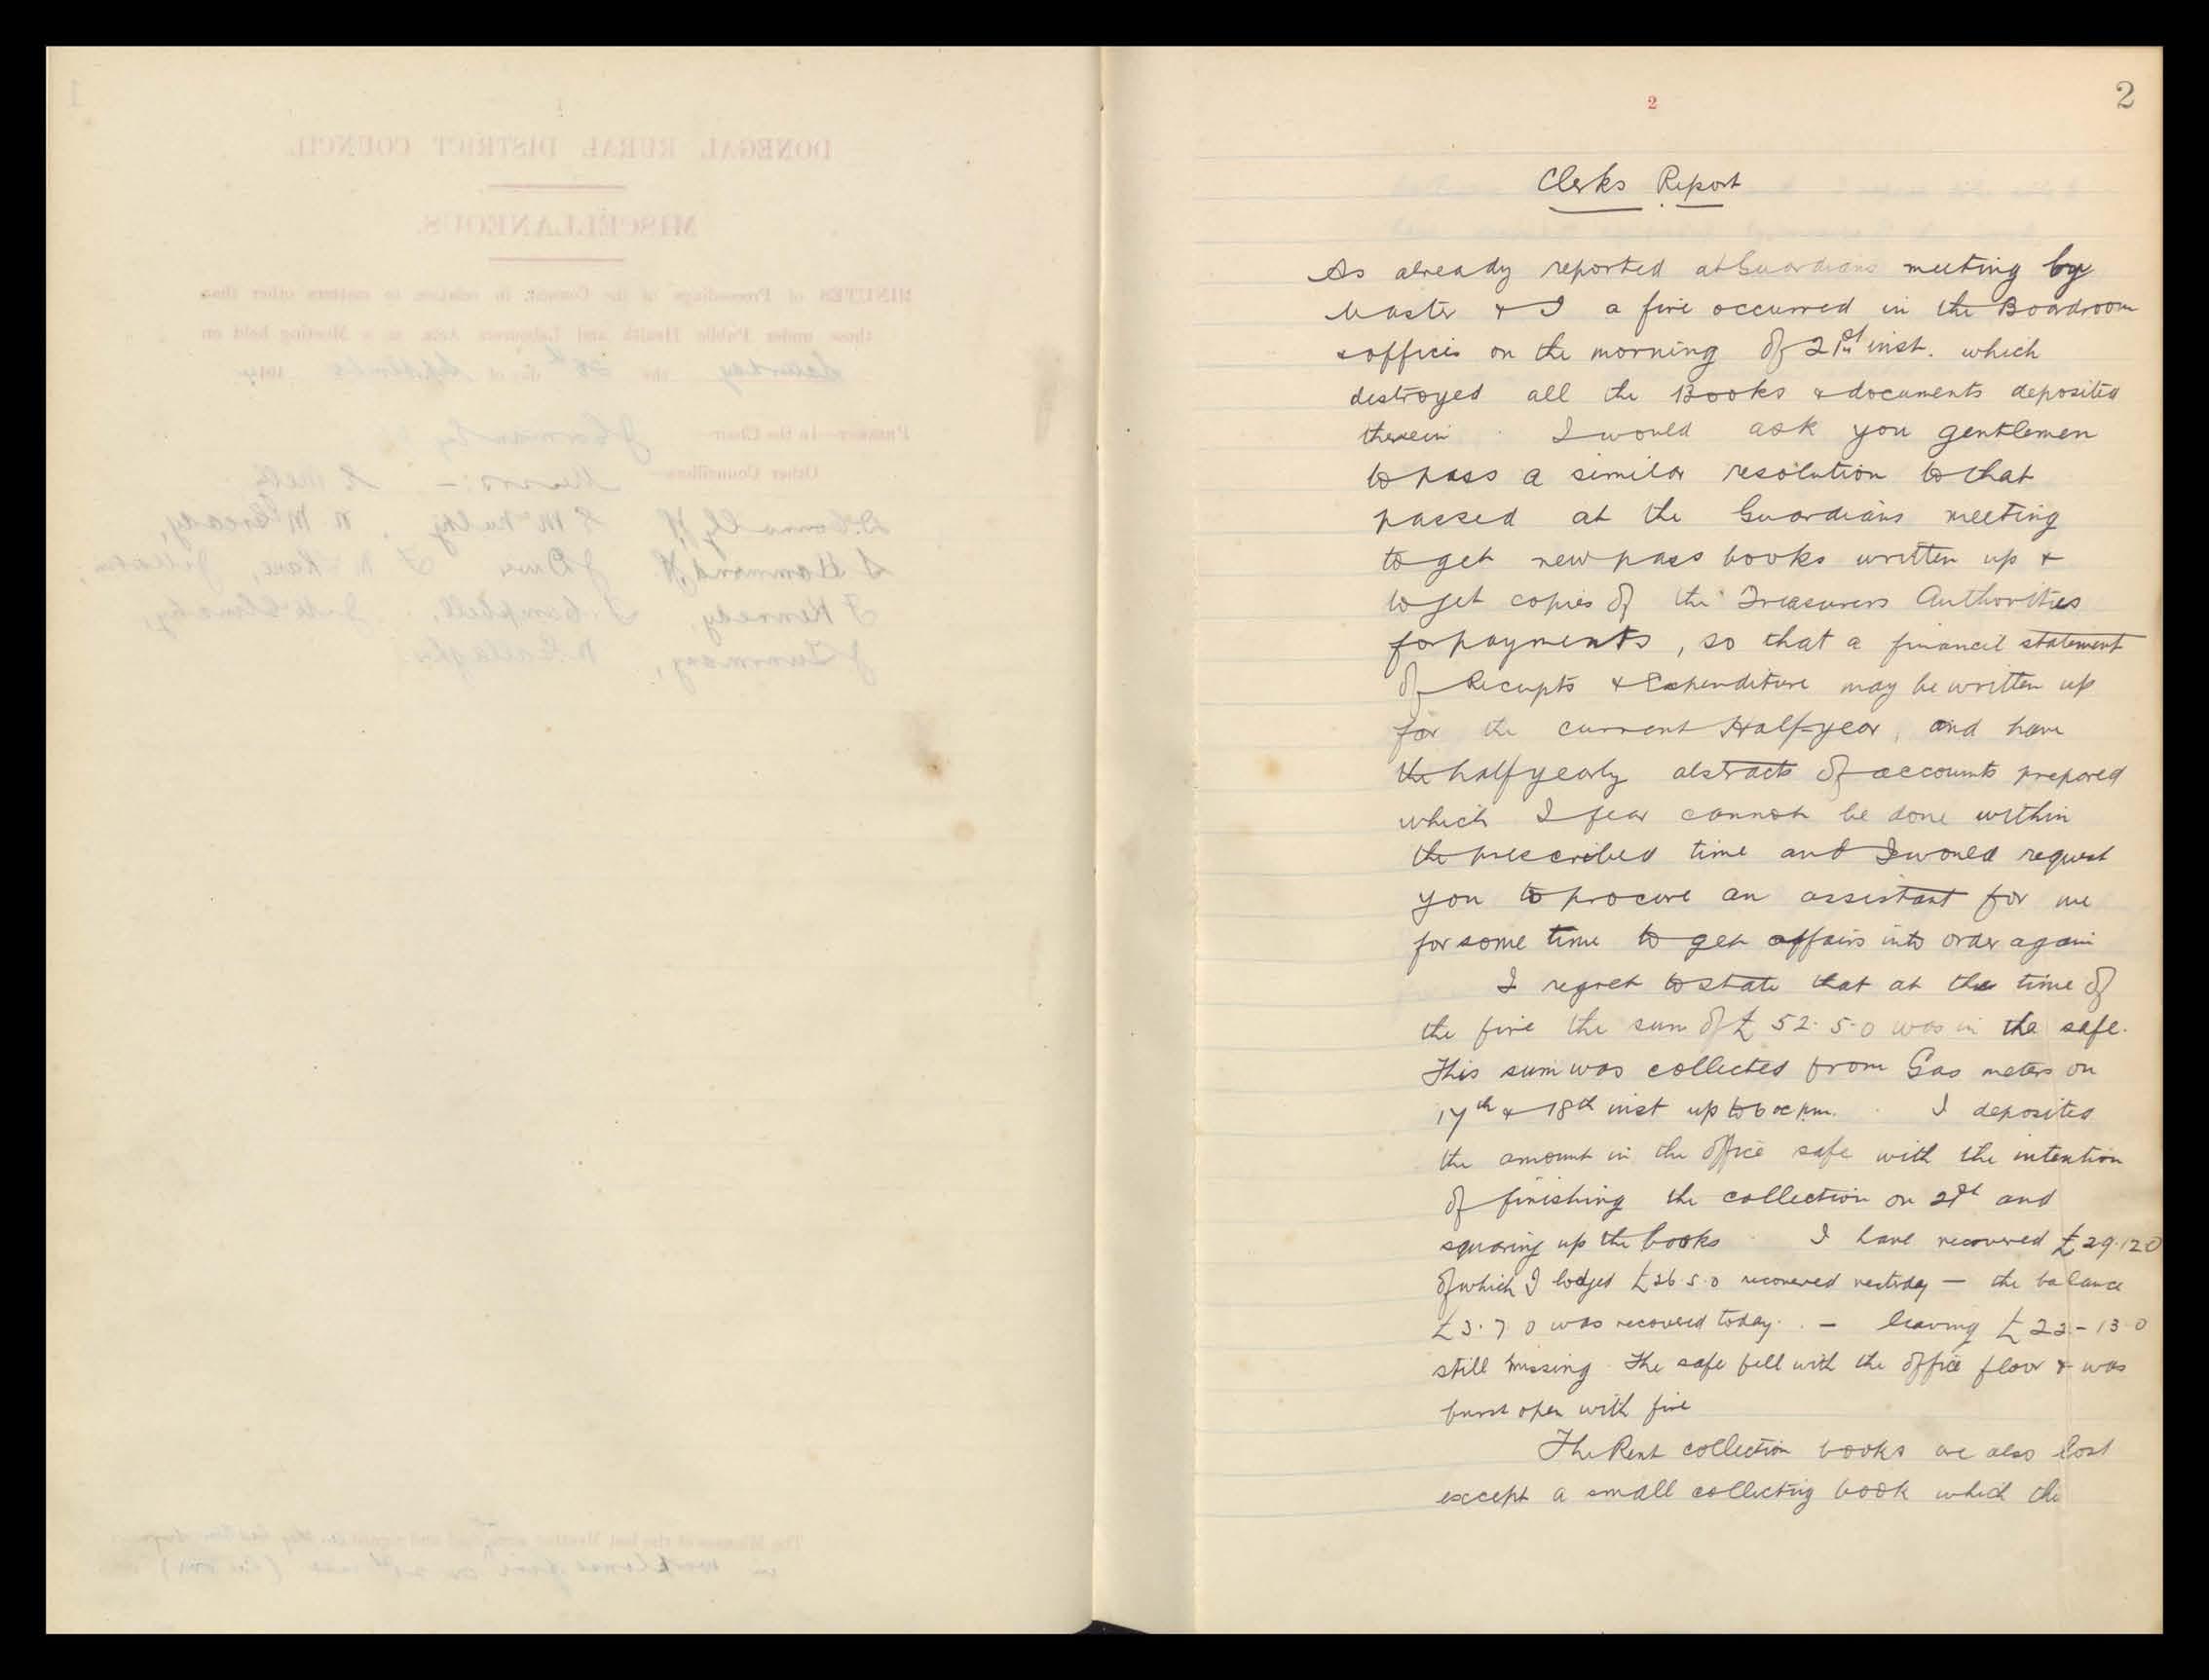 2
2
Clerks Report
As already reported at Guardians meeting by
Master & I a fire occurred in the Boardroom
& offices on the morning of 21st inst. which
destroyed all the Books & documents deposited
therein I would ask you gentlemen
to pass a similar resolution to that
passed at the Guardians meeting
to get new pass books written up &
to get copies of the Treasurers Authorities
for payments, so that a financil statement
of Receipts & Expenditure may be written up
for the current Half-year, and have
the half yearly abstracts of accounts prepared
which I fear cannot be done within
the prescribed time and I would request
you to procure an assistant for me
for some time to get affairs into order again
I regret to state that at the time of
the fire the sum of £52.5.0 was in the safe.
This sum was collected from Gas meters on
17th & 18th inst up to 6 oc p.m. I deposited
the amount in the office safe with the intention
of finishing the collection on 21st and
squaring up the books I have recovered £29.12.0
of which I lodged £26.5.0 recovered yesterday — the balance
£3.7.0 was recovered today. — leaving £22-13.0
still missing. The safe fell with the office floor & was
burst open with fire
The Rent collection books are also lost
except a small collecting book which the
1
DONEGAL RURAL DISTRICT COUNCIL.
MISCELLANEOUS.
MINUTES of Proceedings of the Council, in relation to matters other than
those under Public Health and Labourers Acts, at a Meeting held on
Saturday the day of 191
PRESENT—In the Chair
Other Councillors—